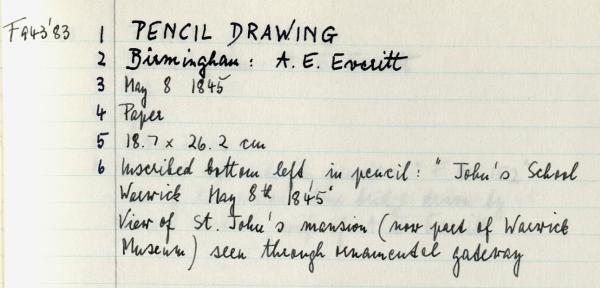 F943'83 1 PENCIL DRAWING
2 Birmingham: A. E. Everitt
3 May 8 1845
4 Paper
5 18.7 x 26.2 cm
6 Inscribed bottom left in pencil: "John's School
Warwick May 8th 1845"
View of St. John's mansion (now part of Warwick
Museum) seen through ornamental gateway